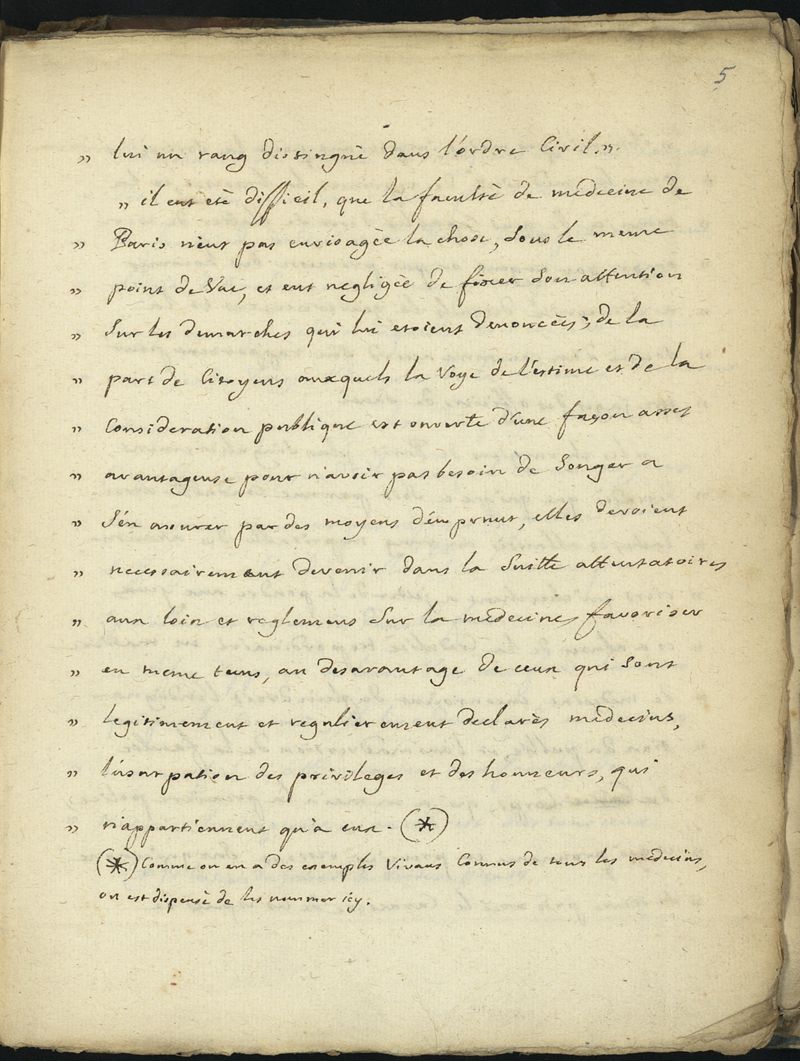 5
" lui un rang distingué dans l'ordre Civil. ".
" il eut eté difficil, que la faculté de medecine de
" Paris n'eut pas envisagée la chose, Sous le meme
" point de Vue, et eut negligée de fixer Son attention
" Sur les demarches qui lui etoient denoncées; de la
" part de Citoyens auxquels la Voye de l'estime et de la
" Consideration publique est ouverte d'une façon asses
" avantageuse pour n'avoir pas besoin de Songer a
" S'en assurer par des moyens d'emprunt, elles devoient
" necessairement devenir dans la Suitte attentatoires
" aux loix et reglemens Sur la medecine, favoriser
" en meme tems, au desavantage de ceux qui Sont
" legitimement et regulierement declarés medecins,
" l'usurpation des privileges et des honneurs, qui
" n'appartiennent qu'a eux. (*)
(*) Comme on en a des exemples Vivans Connus de tous les medecins,
on est dispensé de les nommer icy.